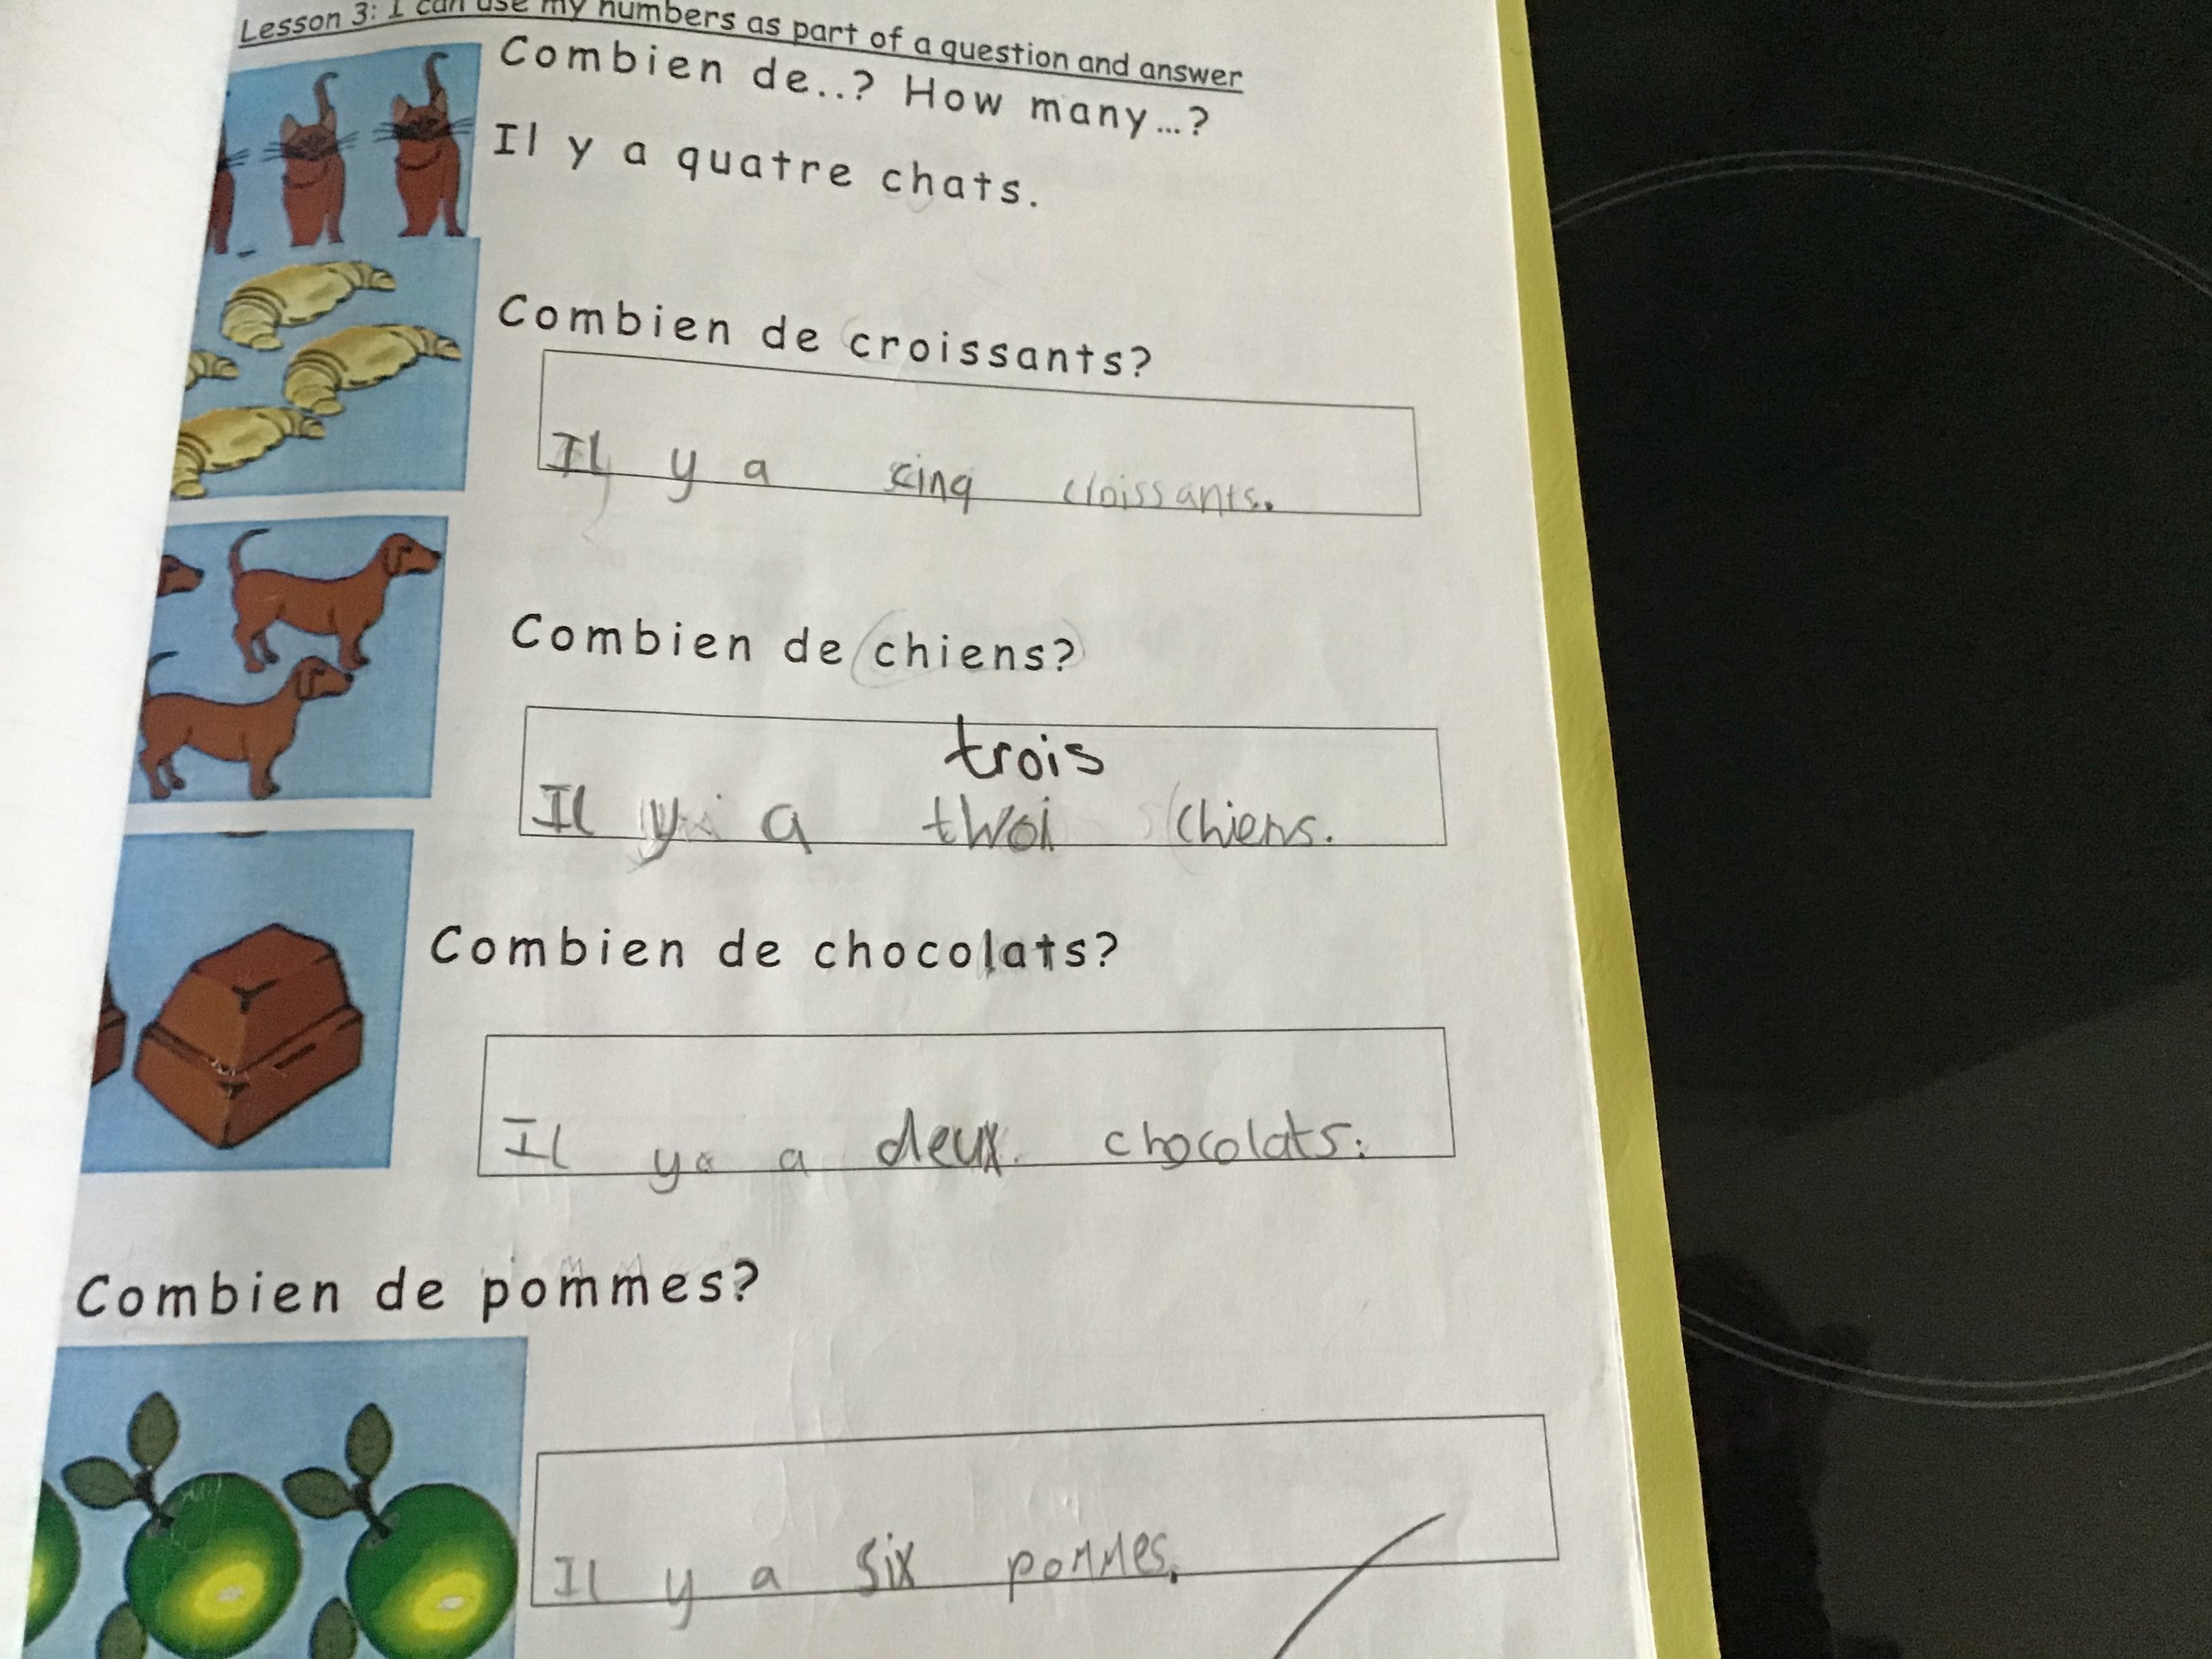 Lesson 3: I can use my numbers as part of a question and answer
Combien de..? How many...?
Il y a quatre chats.
Combien de croissants?
Il y a cinq croissants.
Combien de chiens?
trois
Il y a twoi chiens.
Combien de chocolats?
Il ya a deux chocolats.
Combien de pommes?
Il y a six pommes.